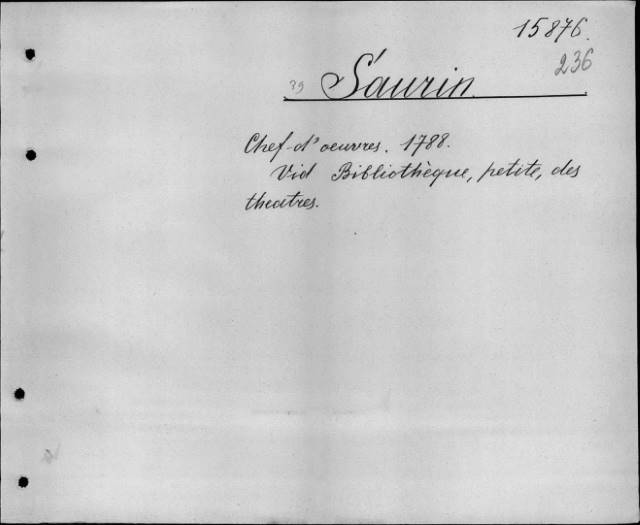 15876.
236
39 Saurin.
Chef-d'oeuvres. 1788.
Vid Bibliothèque, petite, des
theatres.